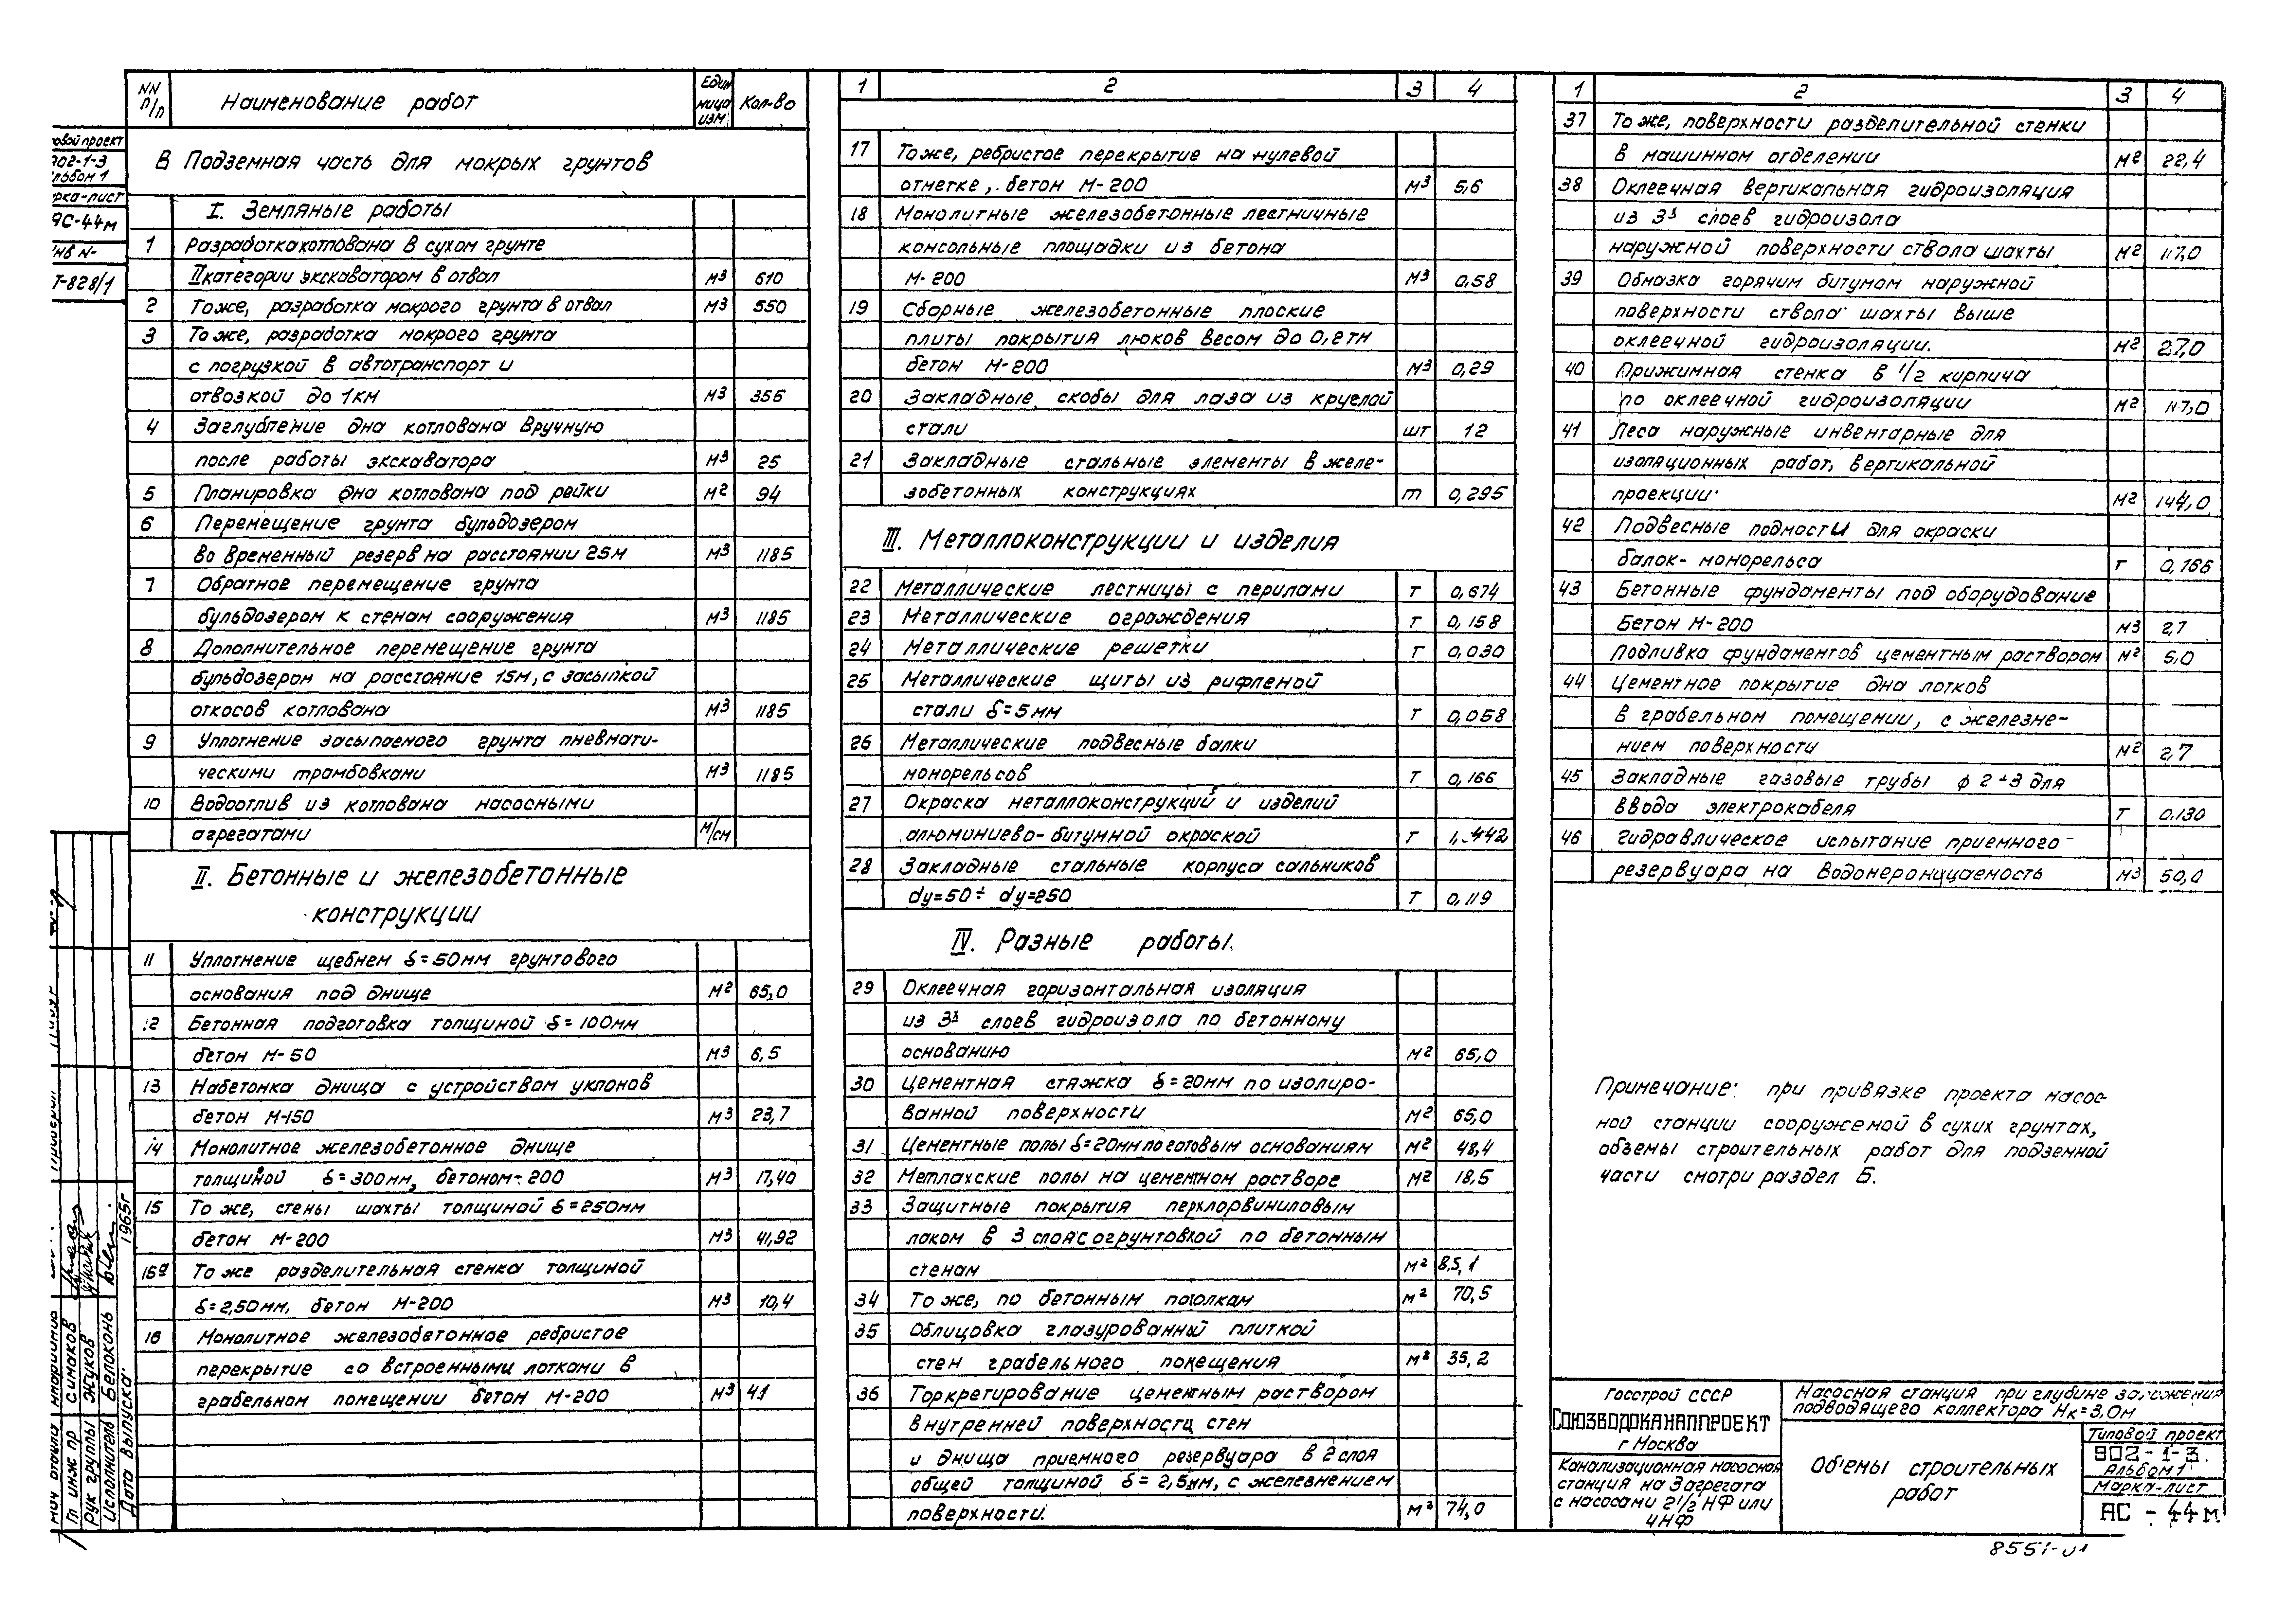 NN п/п Наименование работ Един ница изм Кол-во
В Подземная часть для мокрых грунтов
I. Земляные работы
1 Разработка котлована в сухом грунте
II категории экскаватором в отвал м3 610
2 То же, разработка мокрого грунта в отвал м3 550
3 То же, разработка мокрого грунта
с погрузкой в автотранспорт и
отвозкой до 1 км м3 355
4 Заглубление дна котлована вручную
после работы экскаватора м3 25
5 Планировка дна котлована под рейки м2 94
6 Перемещение грунта бульдозером
во временный резерв на расстоянии 25м м3 1185
7 Обратное перемещение грунта
бульдозером к стенам сооружения м3 1185
8 Дополнительное перемещение грунта
бульдозером на расстояние 15м, с засыпкой
откосов котлована м3 1185
9 Уплотнение засыпаемого грунта пневмати-
ческими трамбовками м3 1185
10 Водоотлив из котлована насосными
агрегатами м/см
II. Бетонные и железобетонные
конструкции
11 Уплотнение щебнем δ=50мм грунтового
основания под днище м2 65,0
12 Бетонная подготовка толщиной δ=100мм
бетон М-50 м3 6,5
13 Набетонка днища с устройством уклонов
бетон М-150 м3 23,7
14 Монолитное железобетонное днище
толщиной δ=300мм, бетоном-200 м3 17,40
15 То же, стены шахты толщиной δ=250мм
бетон М-200 м3 41,92
15а То же разделительная стенка толщиной
δ=2,50мм, бетон М-200 м3 10,4
16 Монолитное железобетонное ребристое
перекрытие со встроенными лотками в
грабельном помещении бетон М-200 м3 4.1
1 2 3 4
17 То же, ребристое перекрытие на нулевой
отметке, бетон М-200 м3 5,6
18 Монолитные железобетонные лестничные
консольные площадки из бетона
М-200 м3 0,58
19 Сборные железобетонные плоские
плиты покрытия люков весом до 0,2тн
бетон М-200 м3 0,29
20 Закладные скобы для лаза из круглой
стали шт 12
21 Закладные стальные элементы в желе-
зобетонных конструкциях т 0,295
III. Металлоконструкции и изделия
22 Металлические лестницы с перилами т 0,674
23 Металлические ограждения т 0,158
24 Металлические решетки т 0,030
25 Металлические щиты из рифленой
стали δ=5мм т 0,058
26 Металлические подвесные балки
монорельсов т 0,166
27 Окраска металлоконструкций и изделий
алюминиево-битумной окраской т 1,442
28 Закладные стальные корпуса сальников
dy=50÷ dy=250 т 0,119
IV. Разные работы
29 Оклеечная горизонтальная изоляция
из 3х слоев гидроизола по бетонному
основанию м2 65,0
30 Цементная стяжка δ=20мм по изолиро-
ванной поверхности м2 65,0
31 Цементные полы δ=20мм по готовым основаниям м2 48,4
32 Метлахские полы на цементном растворе м2 18,5
33 Защитные покрытия перхлорвиниловым
лаком в 3 слоя с огрунтовкой по бетонным
стенам м2 85,1
34 То же, по бетонным потолкам м2 70,5
35 Облицовка глазурованный плиткой
стен грабельного помещения м2 35,2
36 Торкретирование цементным раствором
внутренней поверхности стен
и днища приемного резервуара в 2 слоя
общей толщиной δ=2,5мм, с железнением
поверхности. м2 74,0
1 2 3 4
37 То же, поверхности разделительной стенки
в машинном отделении м2 22,4
38 Оклеечная вертикальная гидроизоляция
из 3х слоев гидроизола
наружной поверхности ствола шахты м2 117,0
39 Обмазка горячим битумом наружной
поверхности ствола шахты выше
оклеечной гидроизоляции. м2 27,0
40 Прижимная стенка в 1/2 кирпича
по оклеечной гидроизоляции м2 117,0
41 Леса наружные инвентарные для
изоляционных работ, вертикальной
проекции. м2 144,0
42 Подвесные подмости для окраски
балок-монорельса т 0,166
43 Бетонные фундаменты под оборудование
Бетон М-200 м3 2,7
Подливка фундаментов цементным раствором м2 5,0
44 Цементное покрытие дна лотков
в грабельном помещении, с железне-
нием поверхности м2 2,7
45 Закладные газовые трубы ф 2÷3 для
ввода электрокабеля т 0,130
46 Гидравлическое испытание приемного
резервуара на водонепроницаемость м3 50,0
Примечание: при привязке проекта насос-
ной станции сооружемой в сухих грунтах,
объемы строительных работ для подземной
части смотри раздел Б.
Госстрой СССР
СОЮЗВОДОКАНАЛПРОЕКТ
г Москва
Канализационная насосная
станция на 3 агрегата
с насосами 2 1/2 НФ или
4НФ
Насосная станция при глубине заложения
подводящего коллектора Нк=3,0м
Объемы строительных
работ
Типовой проект
902-1-3.
Альбом 1
Марка-лист
АС - 44м
8551-01
овой проект
902-1-3
льбом 1
рка-лист
АС-44м
нв N-
Т-828/1
Нач отдела
Гл инж пр Симаков
Рук группы Жуков
Исполнитель Белоконь
Дата выпуска 1965г